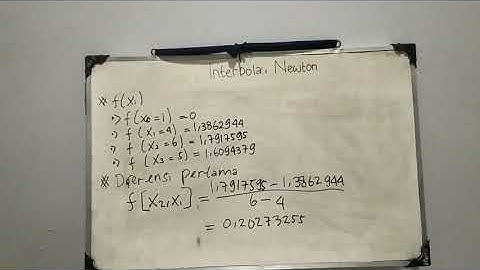 Interbolasi Newton
* f(xi)
> f(x0=1) = 0
> f(x1=4) = 1,3862944
> f(x2=6) = 1,7917595
> f(x3=5) = 1,6094379
* Diferensi pertama
f[x2,x1] = 1,7917595 - 1,3862944
6 - 4
= 0,20273255